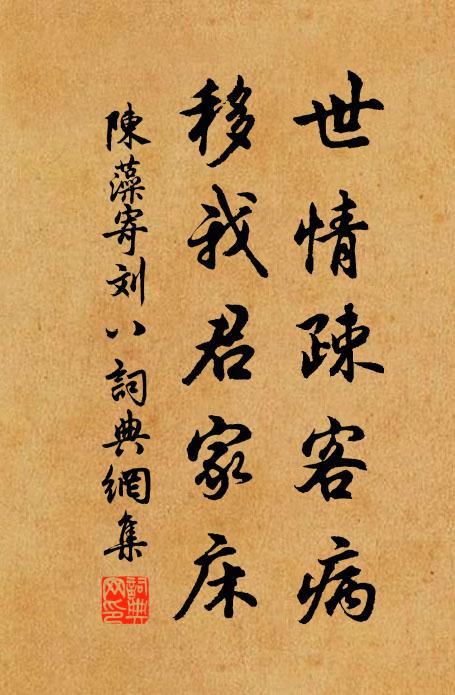 世情疎客病
移我君家床
陳藻寄刘八詞典網集
詞典网印